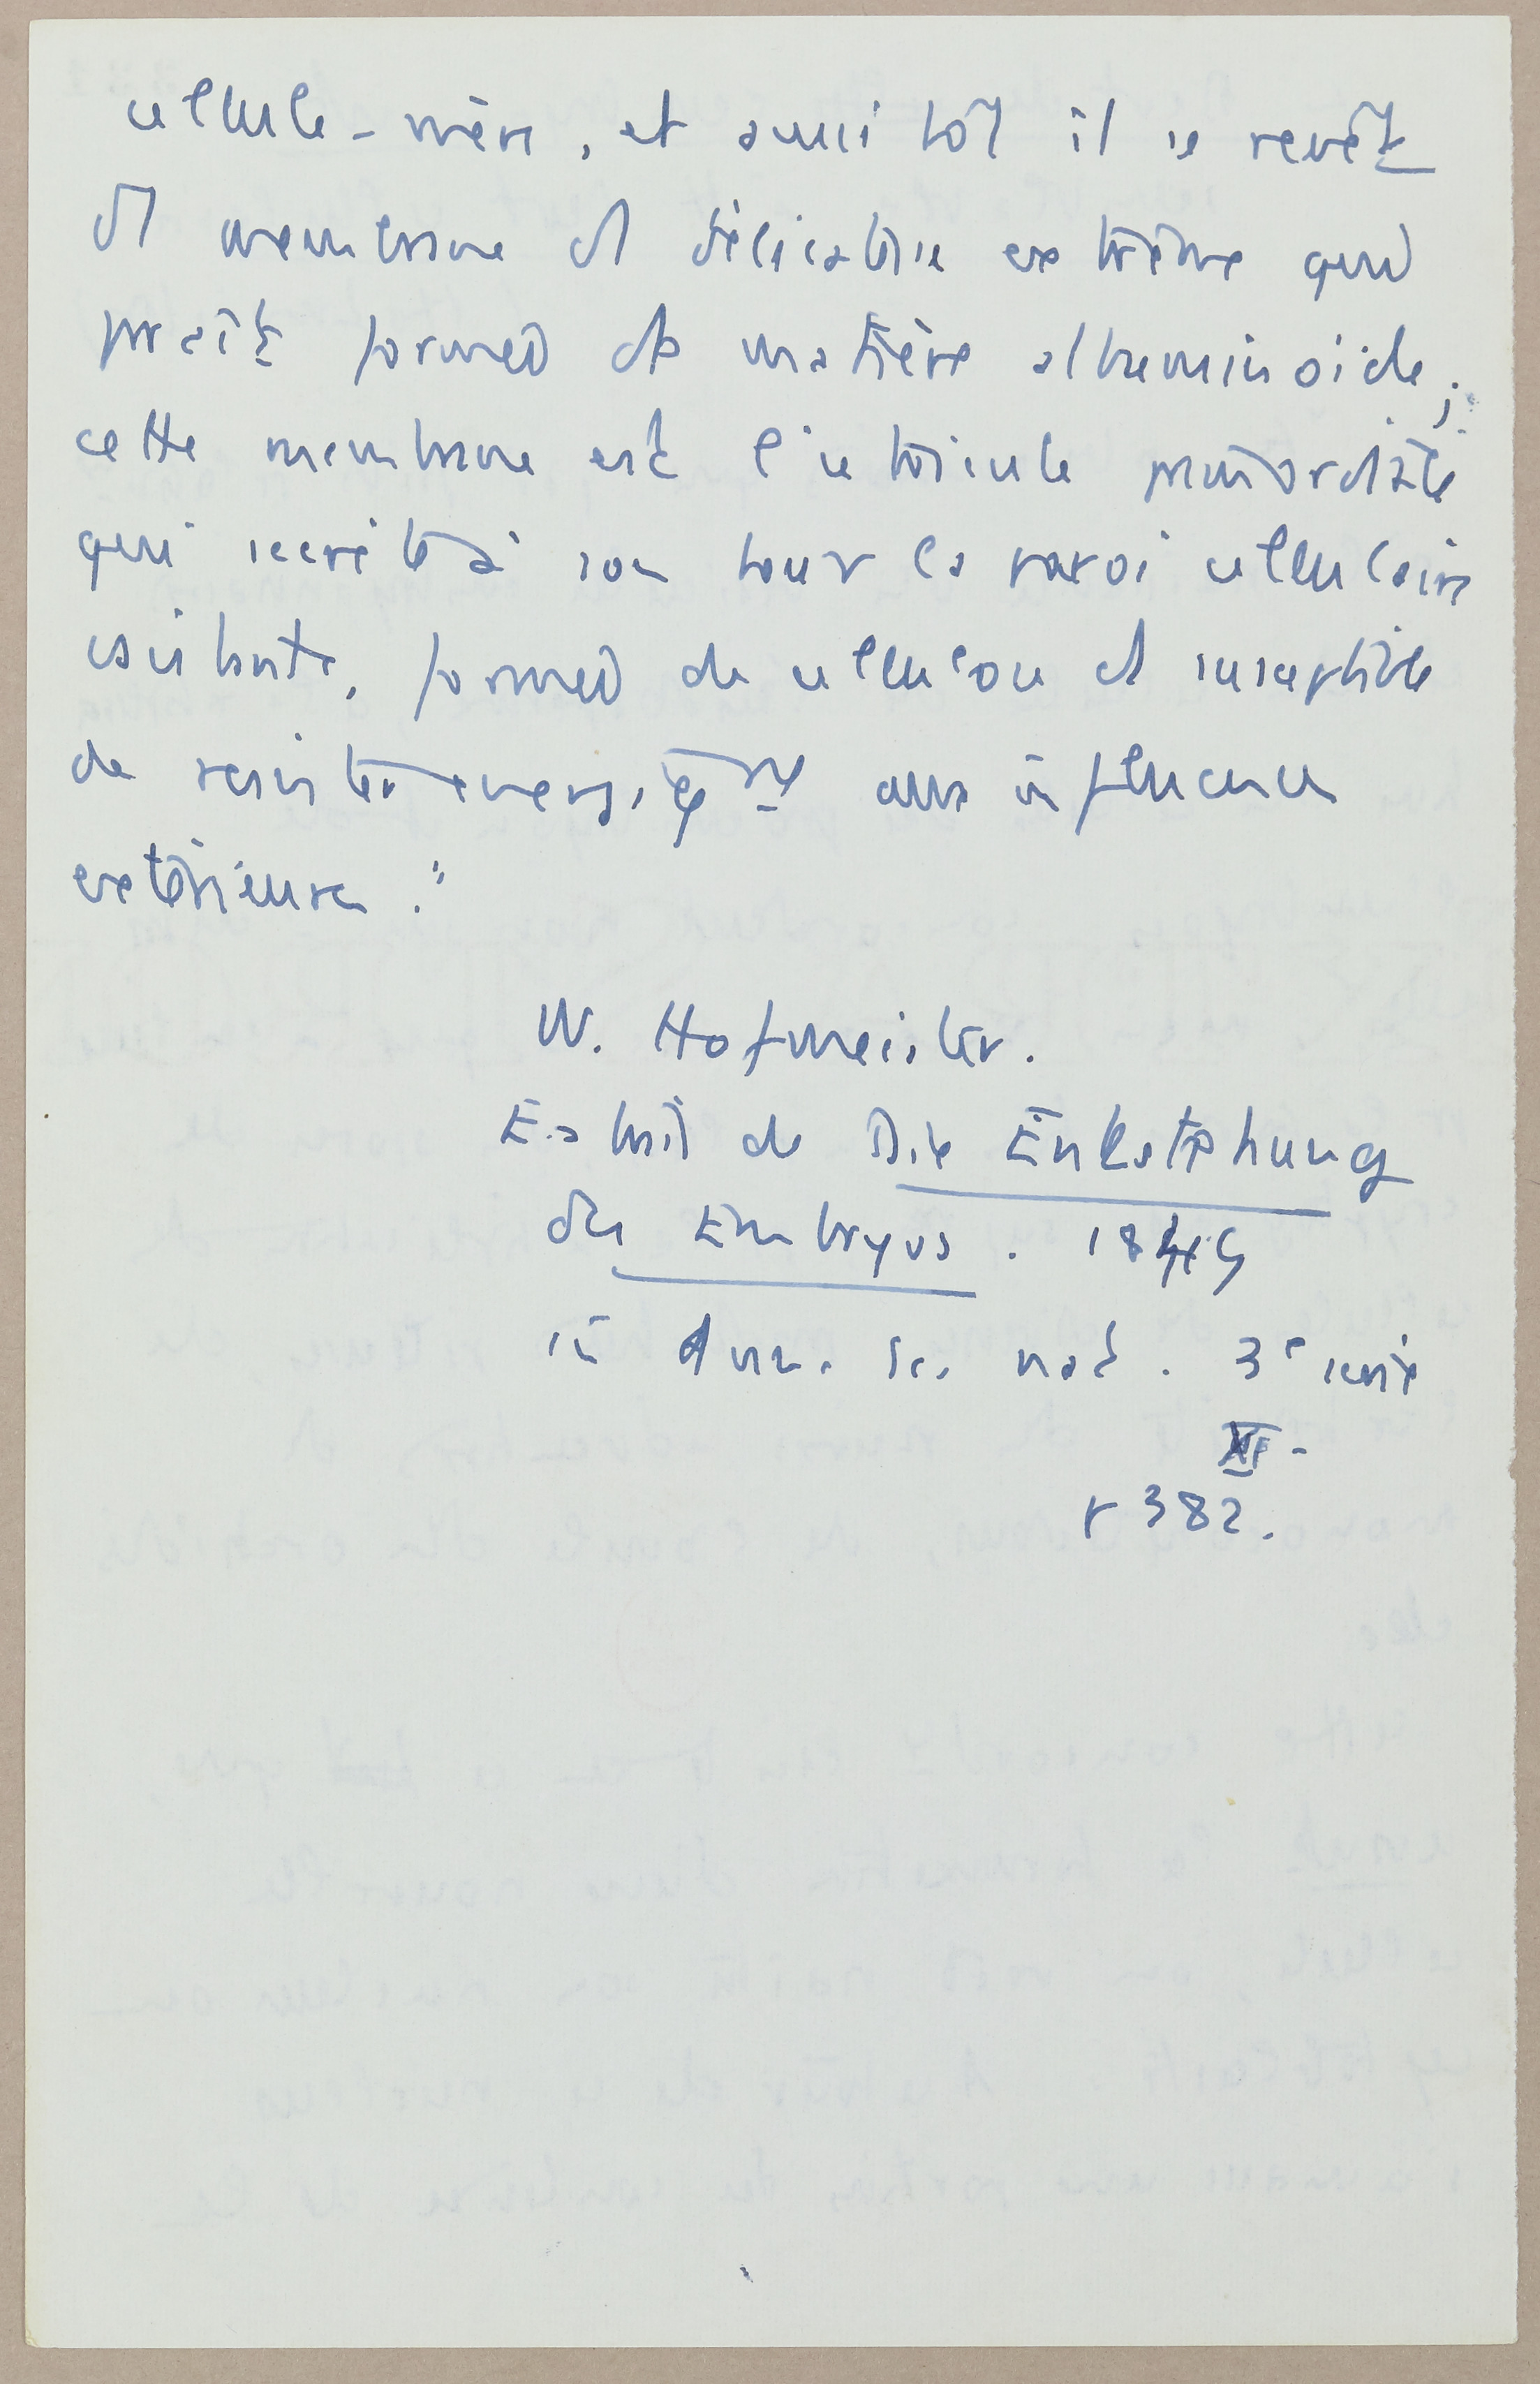 cellule-mère, et aussitôt il se revêt
d'1 membrane d'1 délicatesse extrême qui
paraît formée de matière albuminoïde ;
cette membrane est l'utricule primordiale
qui secrète à son tour la paroi cellulaire
existante, formée de cellulose et susceptible
de résister énergiqt aux influences
extérieures."
W. Hofmeister.
Extrait de Die Enkstehung
des Embryos. 1849
in Ann. Sc. nat. 3e série
XI -
p 382.